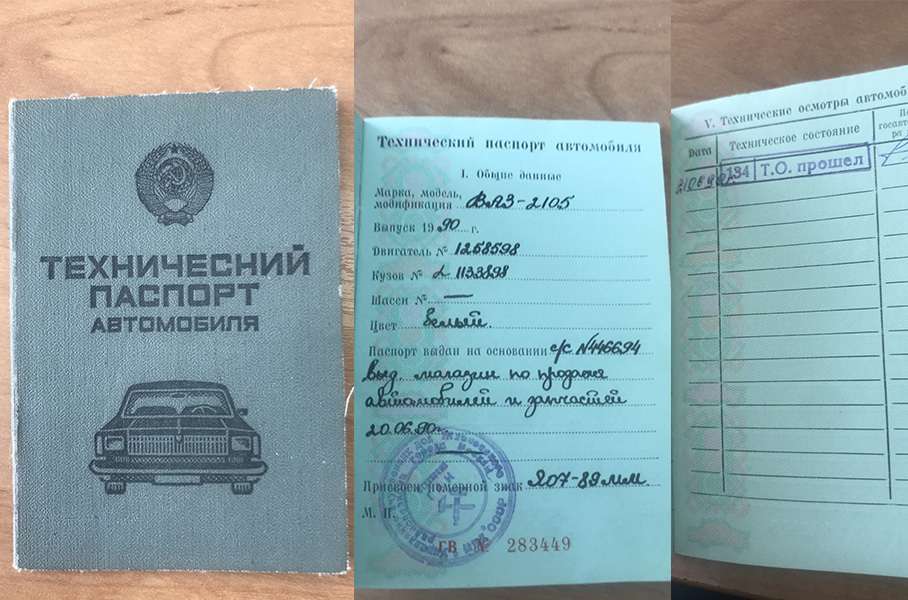 ТЕХНИЧЕСКИЙ
ПАСПОРТ
АВТОМОБИЛЯ
Технический паспорт автомобиля
I. Общие данные
Марка, модель,
модификация ВАЗ-2105
Выпуск 1990 г.
Двигатель № 1258598
Кузов № 1133898
Шасси № —
Цвет белый.
Паспорт выдан на основании с/с №446694
выд. магазин по продаже
автомобилей и запчастей
20.06.90г.
Присвоен номерной знак Я07-89мм.
М. П.
ГВ № 283449
V. Технические осмотры автомоб
Дата
Техническое состояние
госавто
ра
134 Т.О. прошел